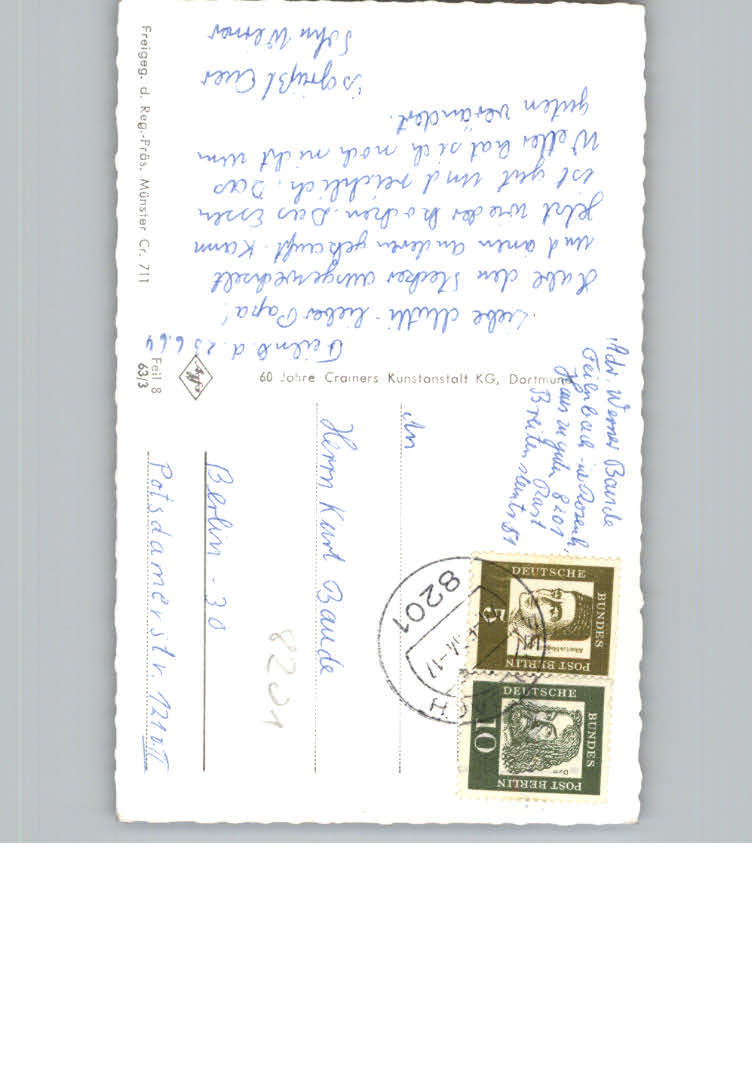 Feilnb. d. 23.6.64
Liebe Mutti - lieber Papa!
Habe den Stecker ausgewechselt
und einen anderen gekauft. Kann
jetzt wieder kochen. Das Essen
ist gut und reichlich. Das
Wetter hat sich noch nicht um
guten verändert.
's grüßt Euer
Sohn Werner
Freigeg. d. Reg.-Präs. Münster Cr. 711
Agfa
Feil 8
63/3
60 Jahre Cramers Kunstanstalt KG, Dortmund
Adr. Werner Baude
Feilnbach
Haus zu guten 8201
Rast
Breitensteinstr 51
An
Herrn Kurt Baude
Berlin - 30
Potsdamerstr. 121
8201
8201
DEUTSCHE
BUNDES
POST BERLIN
5
DEUTSCHE
BUNDES
POST BERLIN
10